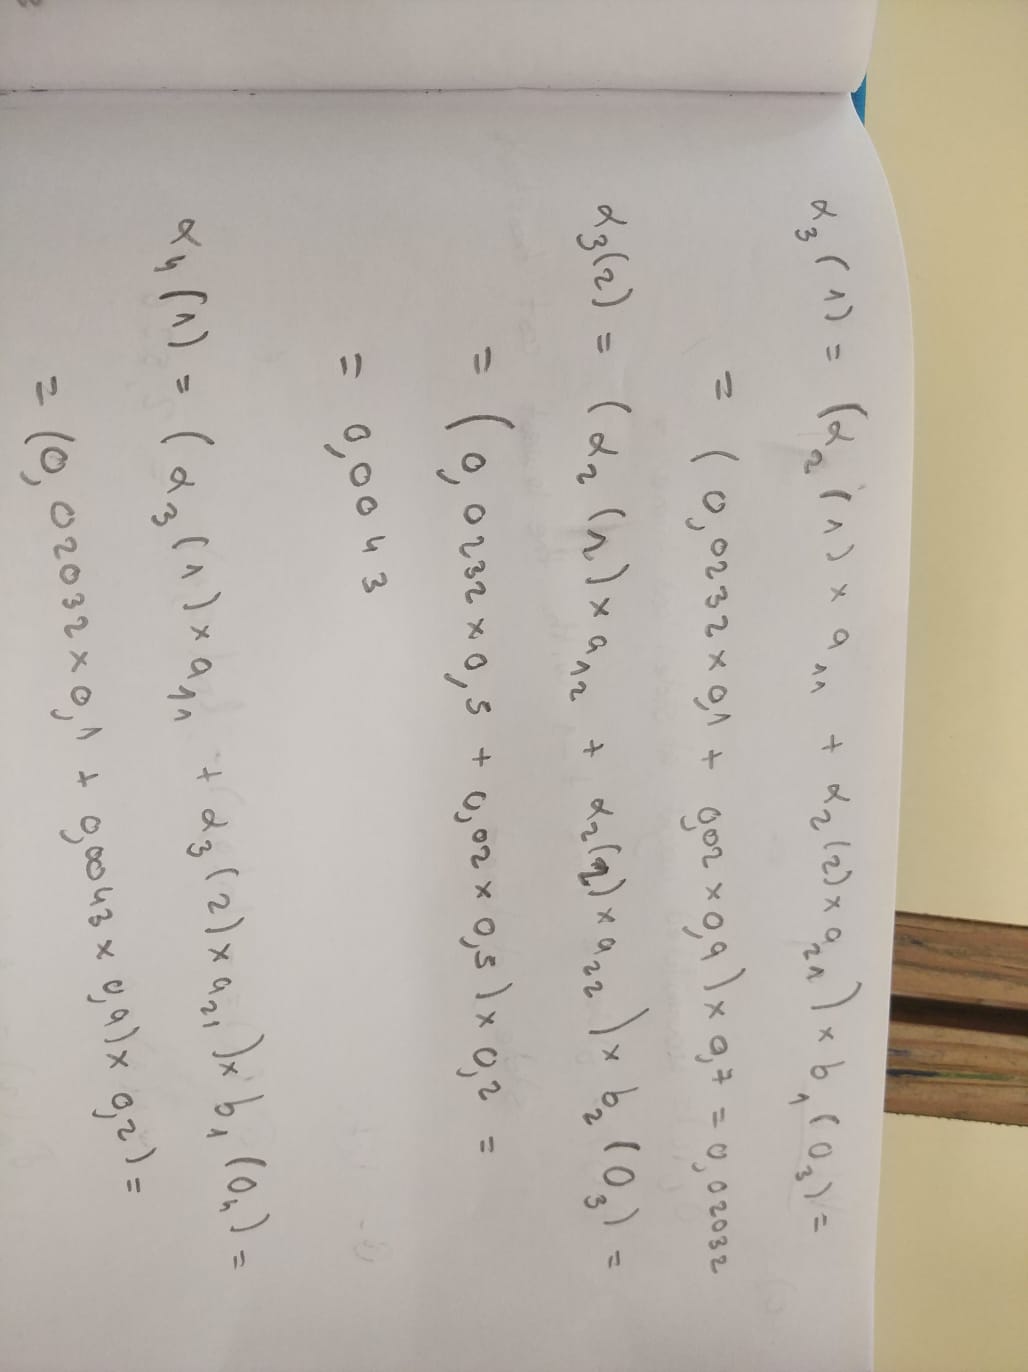 α₃(1) = (α₂(1) × a₁₁ + α₂(2) × a₂₁) × b₁(O₃) =
= (0,0232 × 0,1 + 0,02 × 0,9) × 0,7 = 0,02032
α₃(2) = (α₂(1) × a₁₂ + α₂(2) × a₂₂) × b₂(O₃) =
= (0,0232 × 0,5 + 0,02 × 0,5) × 0,2 =
= 0,0043
α₄(1) = (α₃(1) × a₁₁ + α₃(2) × a₂₁) × b₁(O₄) =
= (0,02032 × 0,1 + 0,0043 × 0,9) × 0,2) =